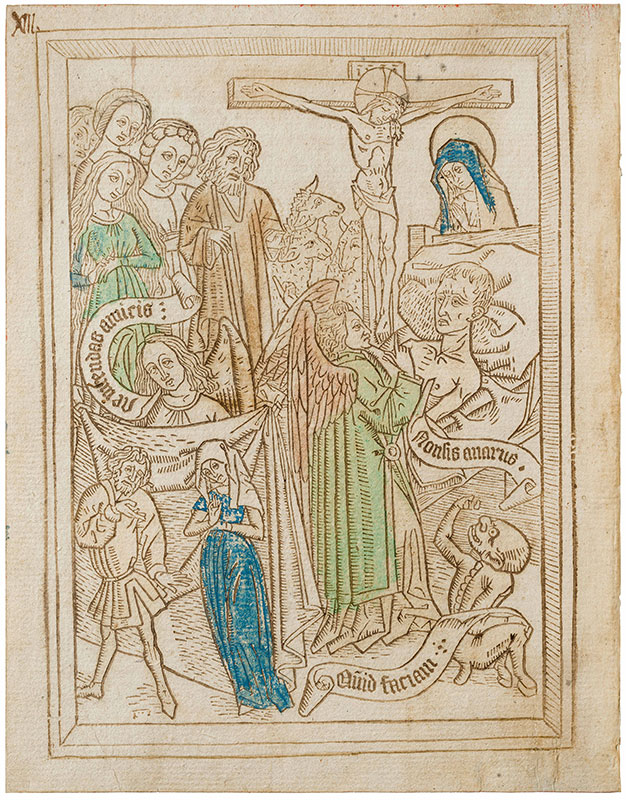 XIII.
Ne intendas amicis :
Non sis auarus .
Quid faciam :